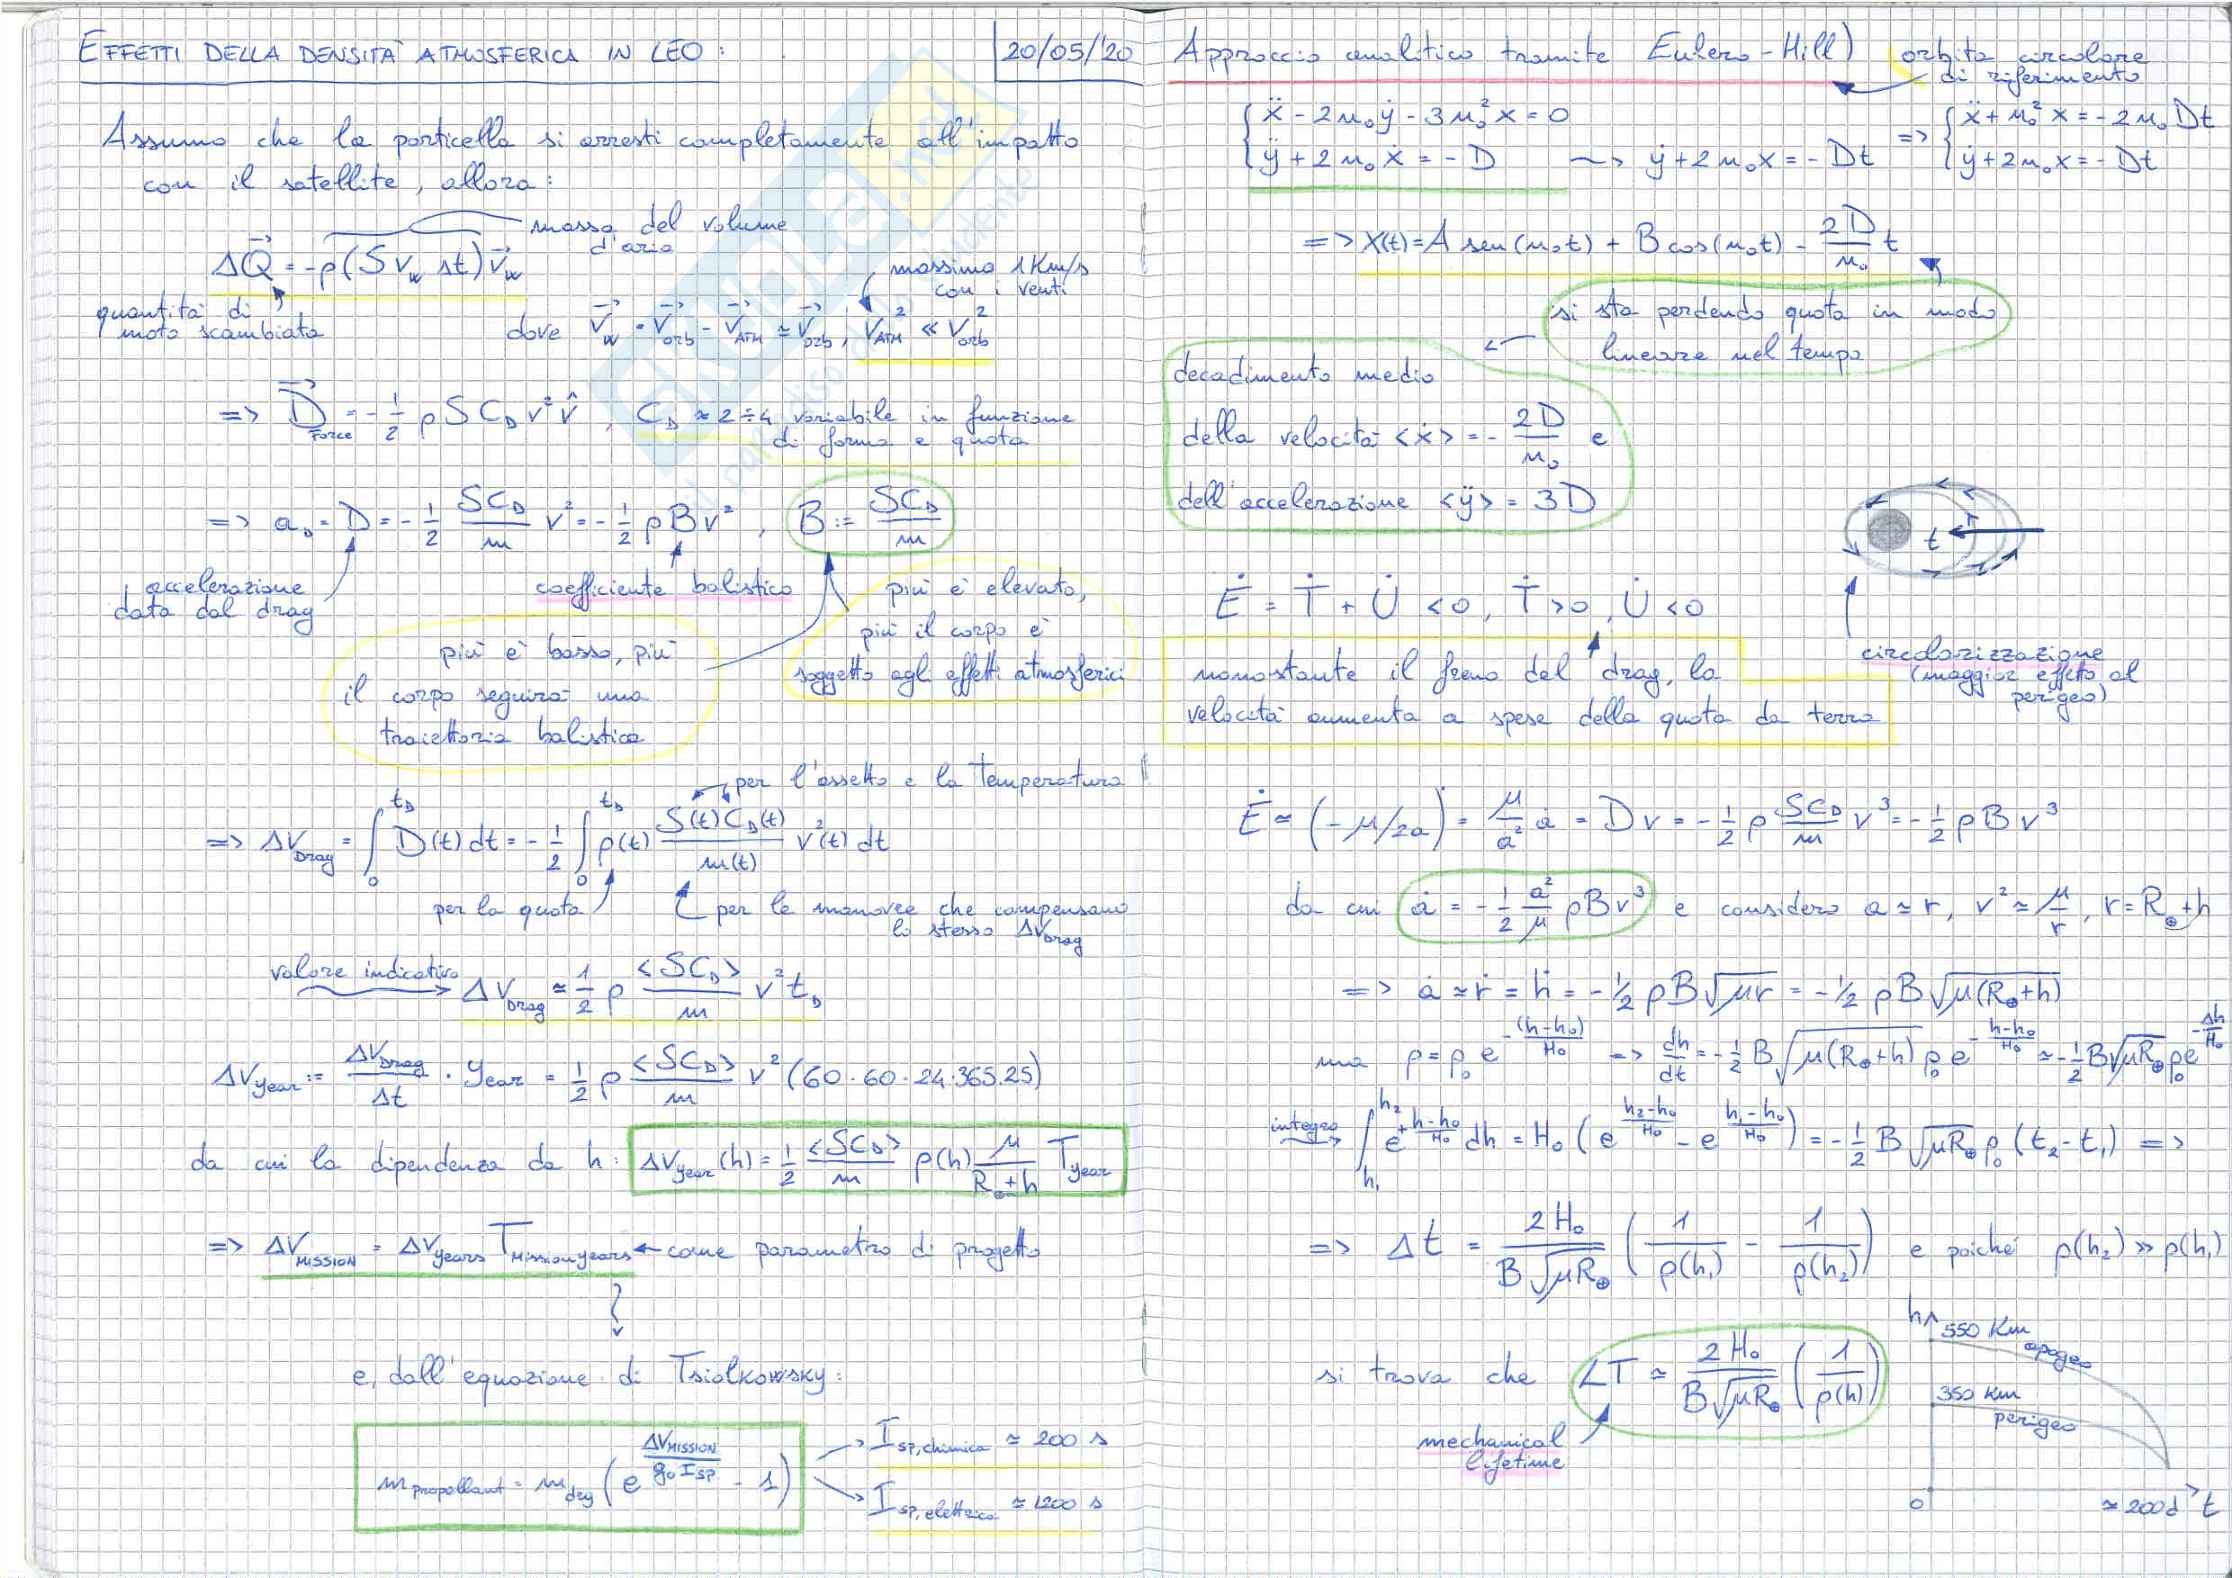 EFFETTI DELLA DENSITÀ ATMOSFERICA IN LEO:
20/05/'20
Assumo che la particella si arresti completamente all'impatto
con il satellite, allora:
massa del volume
d'aria
ΔQ⃗ = -ρ(S v_w Δt) v⃗_w
quantità di
moto scambiata
massimo 1 Km/s
con i venti
dove V⃗_w = V⃗_orb - V⃗_ATM ≃ V⃗_orb, V_ATM² << V_orb²
=> D⃗_Force = -1/2 ρ S C_D v² v̂, C_D ≈ 2÷4 variabile in funzione
di forma e quota
=> a_D = D = -1/2 SC_D/m v² = -1/2 ρ B v², B := SC_D/m
accelerazione
data dal drag
coefficiente balistico
più è elevato,
più il corpo è
soggetto agli effetti atmosferici
più è basso, più
il corpo seguirà una
traiettoria balistica
per l'assetto e la temperatura
=> ΔV_Drag = ∫₀^{t_D} D(t) dt = -1/2 ∫₀^{t_D} ρ(t) S(t)C_D(t)/m(t) v²(t) dt
per la quota
per le manovre che compensano
lo stesso ΔV_Drag
valore indicativo
ΔV_Drag ≃ 1/2 ρ <SC_D>/m v² t_D
ΔV_year := ΔV_Drag/Δt · Year = 1/2 ρ <SC_D>/m v² (60·60·24·365.25)
da cui la dipendenza da h: ΔV_year(h) = 1/2 <SC_D>/m ρ(h) μ/(R_⊕+h) T_year
=> ΔV_MISSION = ΔV_years T_Mission years ← come parametro di progetto
e, dall'equazione di Tsiolkowsky:
m_propellant = m_dry (e^{ΔV_MISSION/(g₀ I_SP)} - 1)
I_SP,chimica ≃ 200 s
I_SP,elettrica ≃ 1200 s
Approccio analitico tramite Eulero-Hill)
orbita circolare
di riferimento
{ẍ - 2n₀ẏ - 3n₀²x = 0
{ÿ + 2n₀ẋ = -D ~> ẏ + 2n₀x = -Dt
=> {ẍ + n₀²x = -2n₀Dt
{ẏ + 2n₀x = -Dt
=> X(t) = A sen(n₀t) + B cos(n₀t) - 2D/n₀ t
si sta perdendo quota in modo
lineare nel tempo
decadimento medio
della velocità <ẋ> = -2D/n₀ e
dell'accelerazione <ÿ> = 3D
t
circolarizzazione
(maggior effetto al
perigeo)
Ė = Ṫ + U̇ < 0, Ṫ > 0, U̇ < 0
nonostante il freno del drag, la
velocità aumenta a spese della quota da terra
Ė ≃ (-μ/2a)˙ = μ/a² ȧ = D v = -1/2 ρ SC_D/m v³ = -1/2 ρ B v³
da cui ȧ = -1/2 a²/μ ρBv³ e considero a ≃ r, v² ≃ μ/r, r = R_⊕+h
=> ȧ ≃ ṙ = ḣ = -1/2 ρB√(μr) = -1/2 ρB√(μ(R_⊕+h))
ma ρ = ρ₀ e^{-(h-h₀)/H₀} => dh/dt = -1/2 B√(μ(R_⊕+h)) ρ₀ e^{-(h-h₀)/H₀} ≃ -1/2 B√(μR_⊕) ρ₀ e^{-Δh/H₀}
integro
∫_{h₁}^{h₂} e^{+(h-h₀)/H₀} dh = H₀ (e^{(h₂-h₀)/H₀} - e^{(h₁-h₀)/H₀}) = -1/2 B√(μR_⊕) ρ₀ (t₂-t₁) =>
=> Δt = 2H₀/(B√(μR_⊕)) (1/ρ(h₁) - 1/ρ(h₂)) e poiché ρ(h₂) >> ρ(h₁)
si trova che LT ≃ 2H₀/(B√(μR_⊕)) (1/ρ(h))
mechanical
lifetime
h
550 Km
apogeo
350 Km
perigeo
0
≃ 200d
t